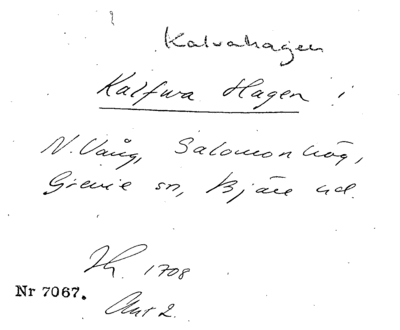 Kalvahagen
Kalfwa Hagen !
N. Vång, Salomonhög,
Grevie sn, Bjäre hd.
Jh. 1708
Nr 7067.
Akt 2.